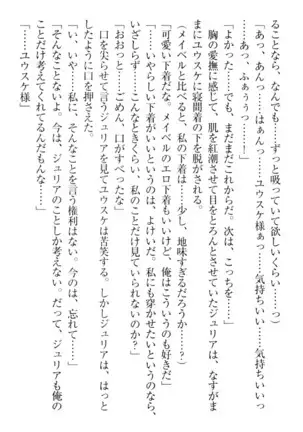 ることなら、なんでも……ずっと吸っていて欲しいくらい……っ)
「あっ、あんっ……はぁんっ……ユウスケ様ぁっ……気持ちいい……気持ちいいっ
……あっ、ふぁぅぅっ……！」
「よかった……でも、まだまだこれからだ。次は、こっちを……」
胸の愛撫に感じて、肌を紅潮させて目をとろんとさせていたジュリアは、なすがま
まにユウスケに寝間着の下を脱がされる。
(メイベルと比べると、私の下着は……少し、地味すぎるだろうか……？)
「可愛い下着だな。メイベルのエロ下着もいいけど、俺はこういうのも好きだ」
「……いやらしい下着がいいというのは、よけいだ。私にも穿かせたいというのなら、
いざしらず……こんなときくらい、私のことだけ見ていられないのか？」
「おおっと……ごめん、口がすべったな」
口を尖らせて言うジュリアを見てユウスケは苦笑する。しかしジュリアは、はっと
したように口を押さえた。
「い、いや……私に、そんなことを言う権利はない。今のは、忘れて……」
「そんなことないよ。今は、ジュリアのことしか考えない。だって、ジュリアも俺の
ことだけ考えてくれてるんだもんな……」
「……ユウスケ様」